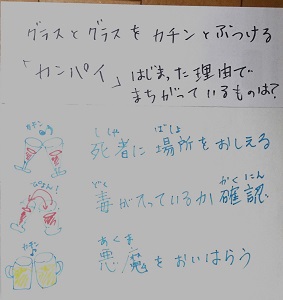 グラスとグラスをカチンとぶつける
「カンパイ」はじまった理由で
まちがっているものは？
カチン
ししゃ ばしょ
死者に場所をおしえる
どく かくにん
毒が入っているか確認
あくま
悪魔をおいはらう